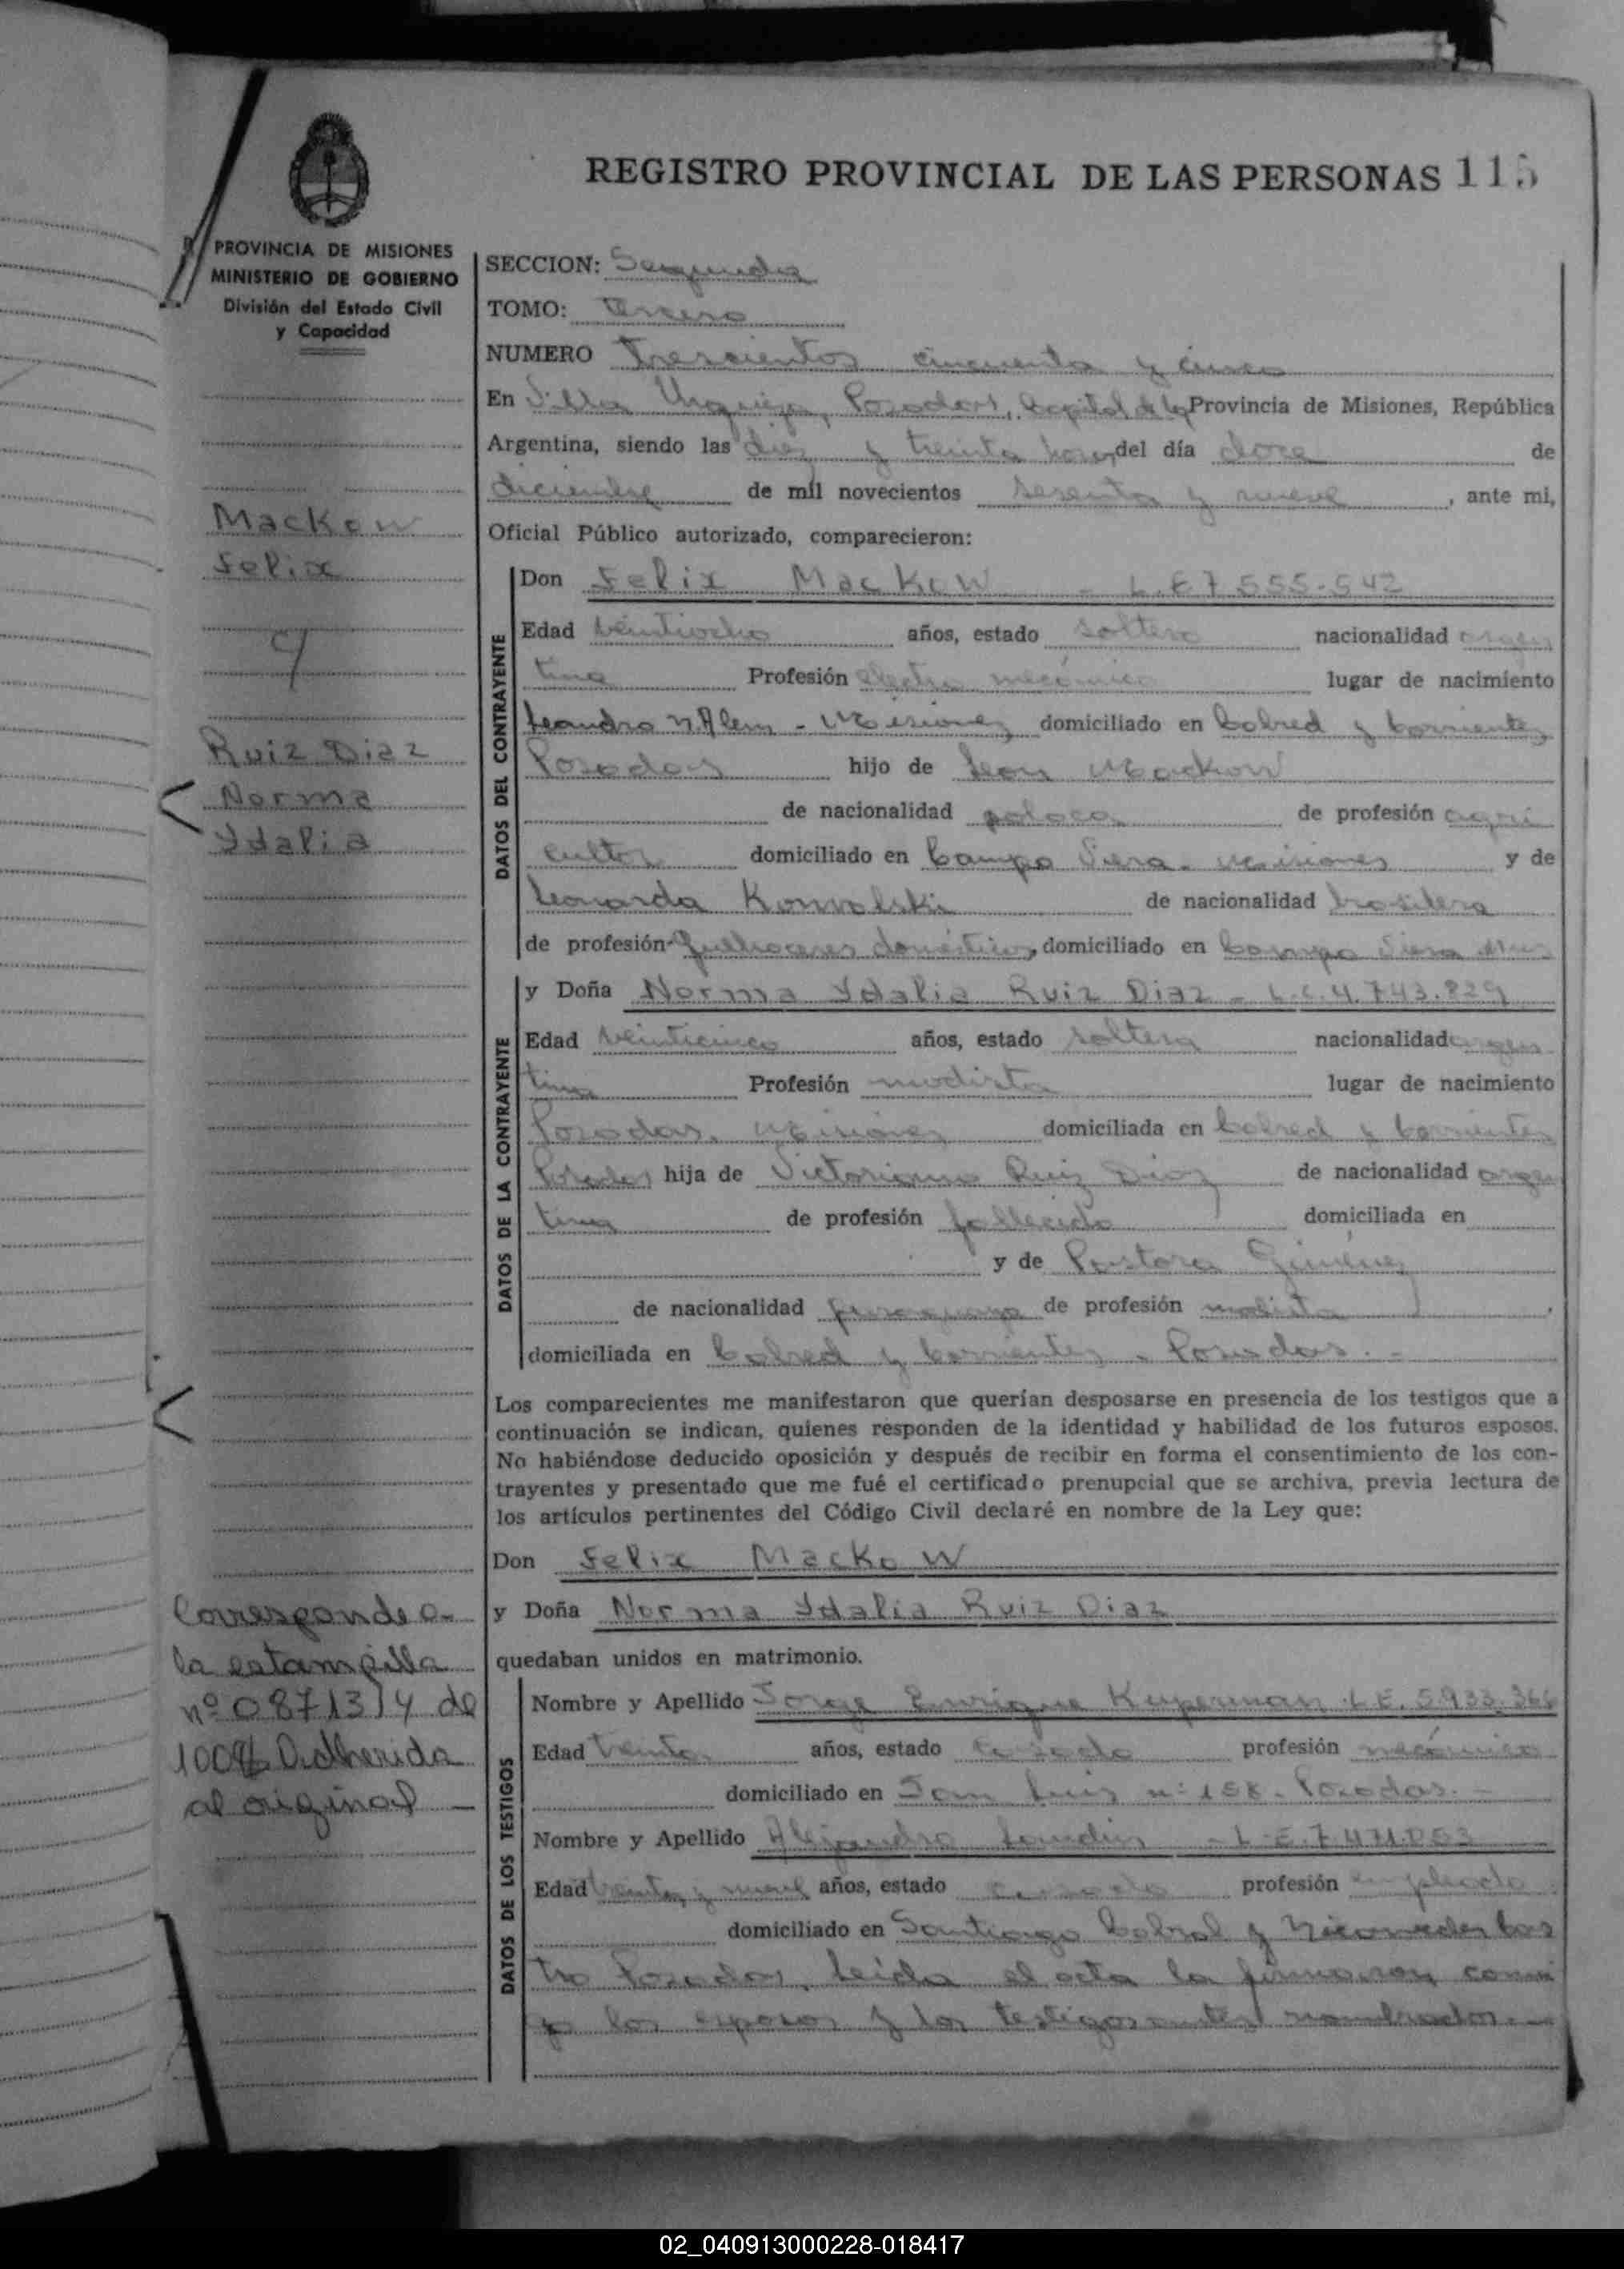 REGISTRO PROVINCIAL DE LAS PERSONAS 115
PROVINCIA DE MISIONES
MINISTERIO DE GOBIERNO
División del Estado Civil
y Capacidad
Mackow
Felix
y
Ruiz Diaz
Norma
Ydalia
Corresponde a
la estampilla
nº 0871314 de
100$ Adherida
al original —
SECCION: Segunda
TOMO: tercero
NUMERO Trescientos cincuenta y cinco
En Villa Urquiza, Posadas, Capital de la Provincia de Misiones, República
Argentina, siendo las diez y treinta horas del día doce de
diciembre de mil novecientos sesenta y nueve, ante mi,
Oficial Público autorizado, comparecieron:
DATOS DEL CONTRAYENTE
Don Felix Mackow - L.E 7.555.542
Edad veintiocho años, estado soltero nacionalidad argen
tina Profesión electro mecánico lugar de nacimiento
Leandro N. Alem - Misiones domiciliado en Cabred y Corrientes
Posadas hijo de Leon Mackow
de nacionalidad polaca de profesión agri
cultor domiciliado en Campo Viera - Misiones y de
Leonarda Kowalski de nacionalidad brasilera
de profesión Quehaceres domésticos, domiciliado en Campo Viera Mnes
DATOS DE LA CONTRAYENTE
y Doña Norma Ydalia Ruiz Diaz - L.C. 4.743.829
Edad veinticinco años, estado soltera nacionalidad argen
tina Profesión modista lugar de nacimiento
Posadas, Misiones domiciliada en Cabred y Corrientes
Posadas hija de Victoriano Ruiz Diaz de nacionalidad argen
tina de profesión fallecido domiciliada en
y de Pastora Giménez
de nacionalidad paraguaya de profesión modista
domiciliada en Cabred y Corrientes - Posadas. -
Los comparecientes me manifestaron que querían desposarse en presencia de los testigos que a
continuación se indican, quienes responden de la identidad y habilidad de los futuros esposos.
No habiéndose deducido oposición y después de recibir en forma el consentimiento de los con-
trayentes y presentado que me fué el certificado prenupcial que se archiva, previa lectura de
los artículos pertinentes del Código Civil declaré en nombre de la Ley que:
Don Felix Mackow
y Doña Norma Ydalia Ruiz Diaz
quedaban unidos en matrimonio.
DATOS DE LOS TESTIGOS
Nombre y Apellido Jorge Enrique Kuperman L.E. 5.933.366
Edad treinta años, estado casado profesión mecánico
domiciliado en San Luis nº 158. Posadas. -
Nombre y Apellido Alejandro - L.E. 7.471.053
Edad treinta y nueve años, estado casado profesión empleado
domiciliado en Santiago Cabral y Nicomedes Cas
tro Posadas. Leída el acta la firmaron conmi
go los esposos y los testigos antes nombrados. —
02_040913000228-018417